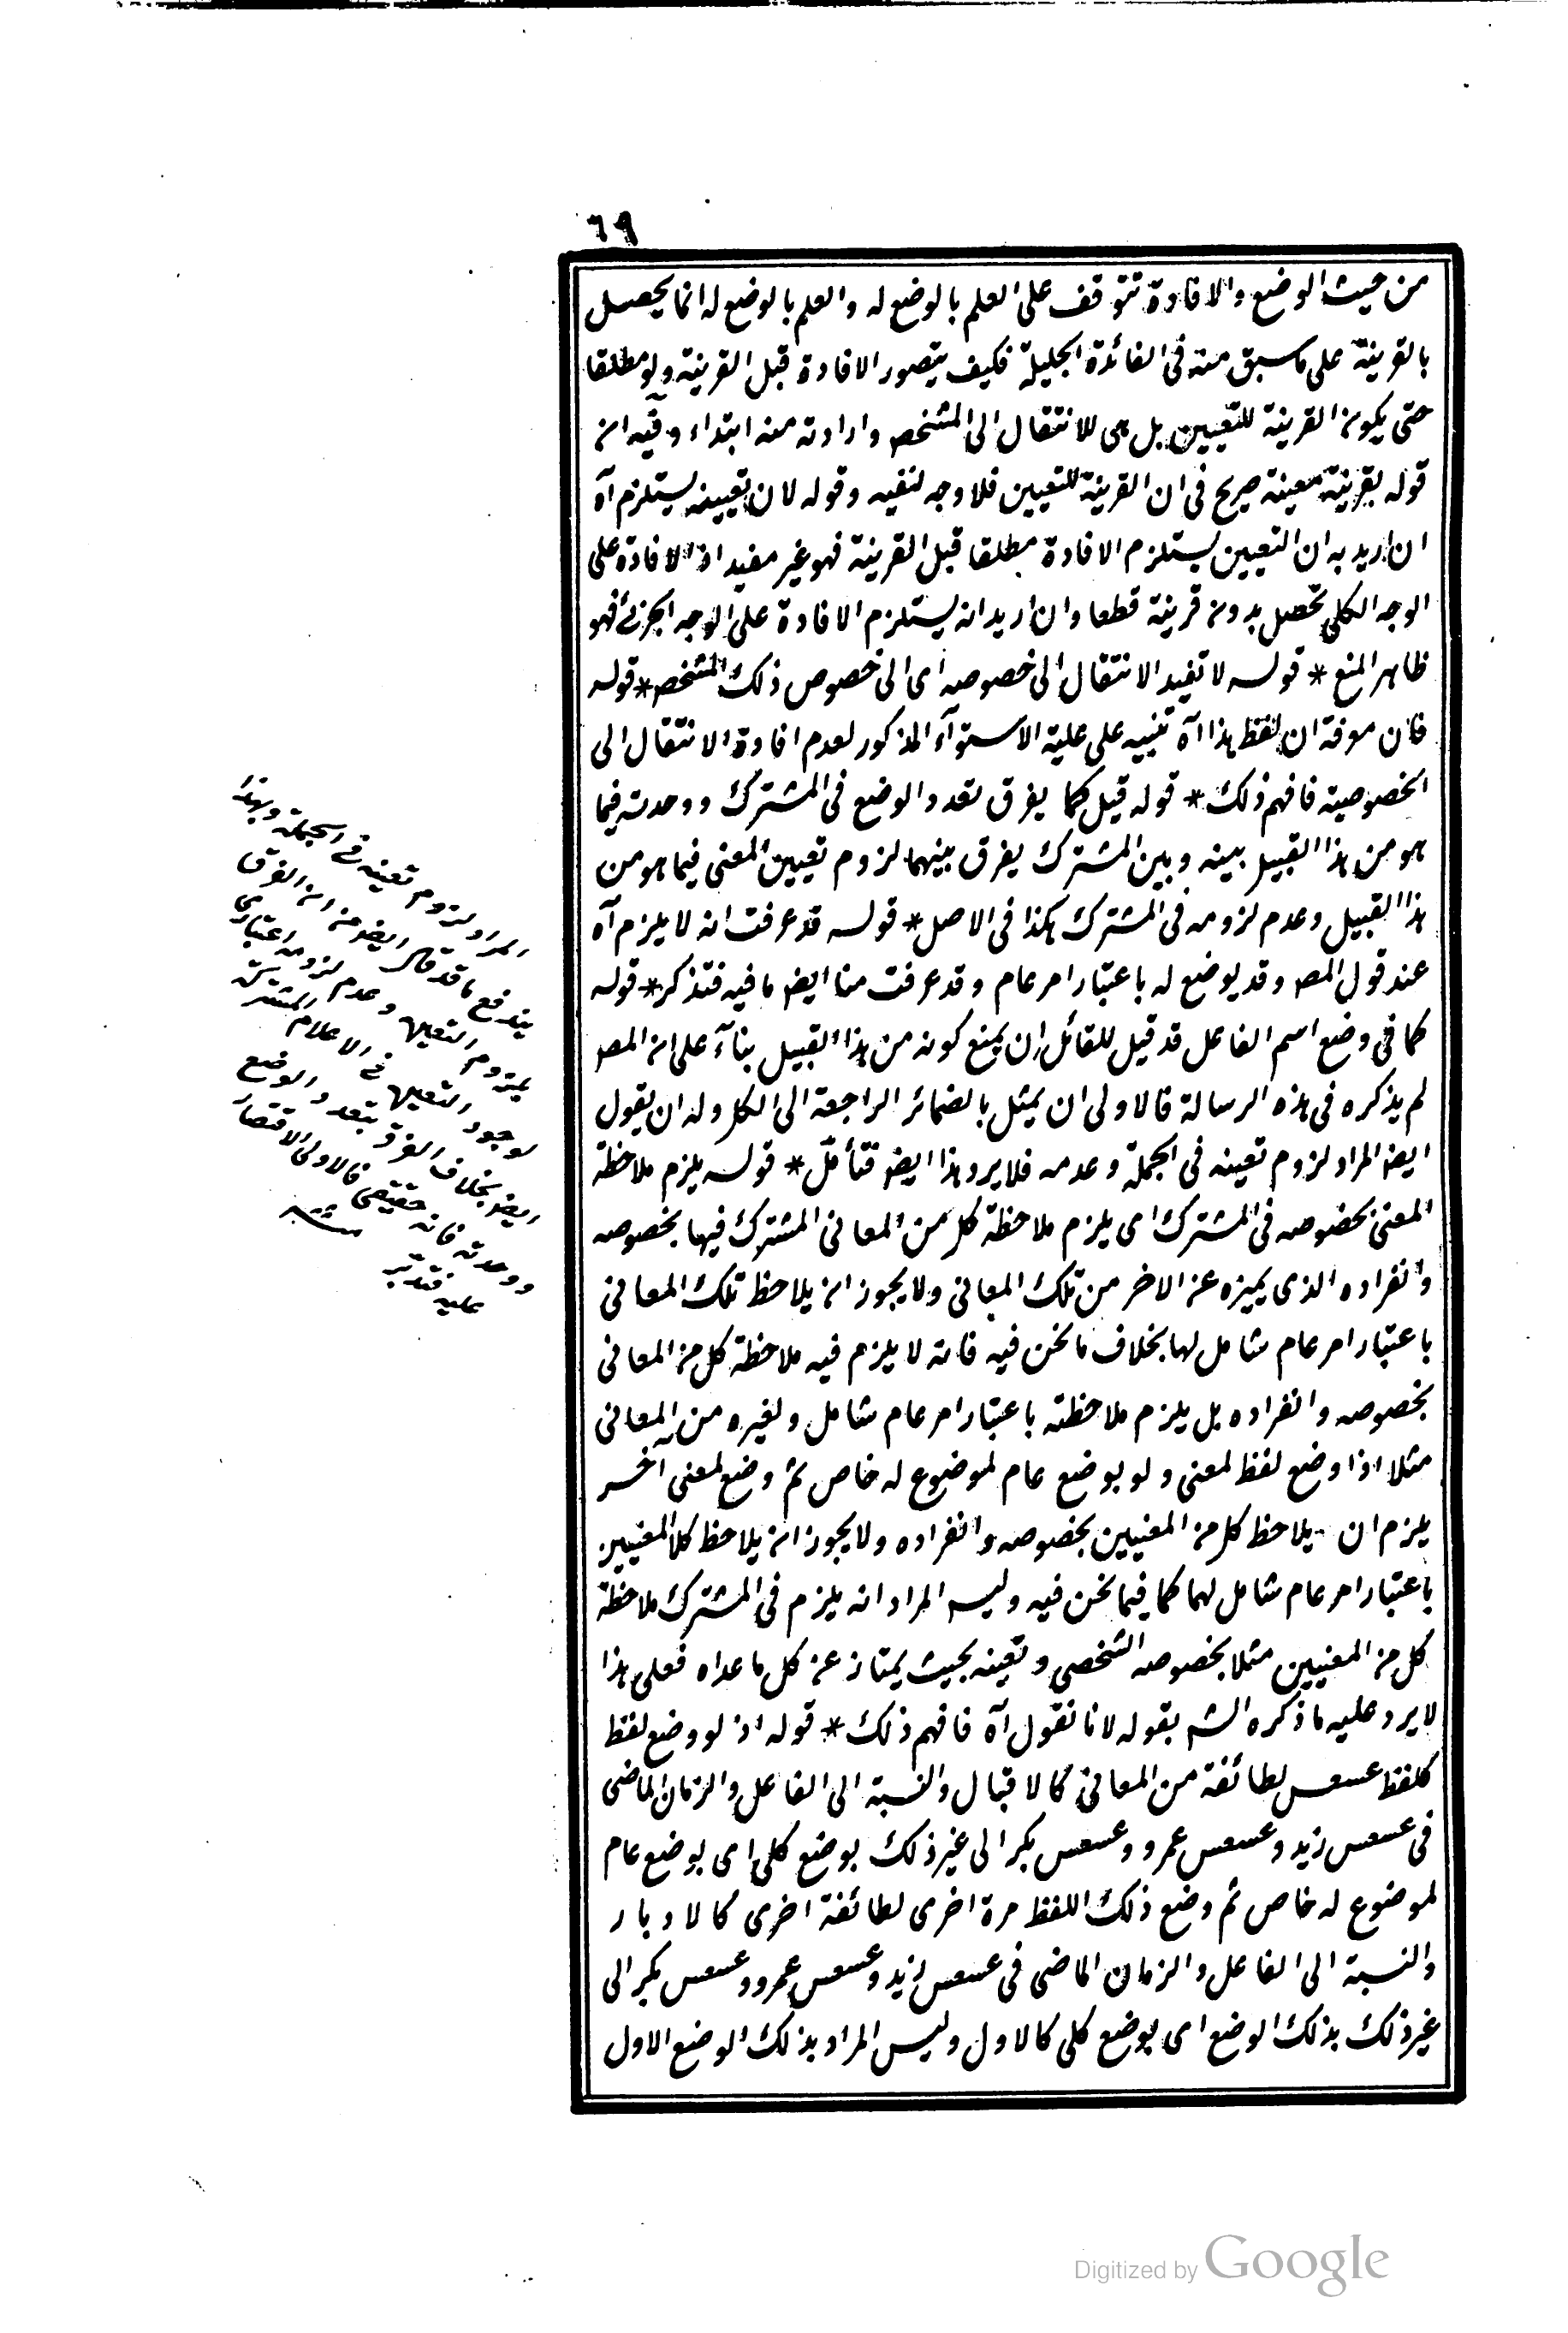 ٦٩
من حيث الوضع والافادة تتوقف على العلم بالوضع له والعلم بالوضع له انما يحصل
بالقرينة على ما سبق منه فى الفائدة الجليلة فكيف يتصور الافادة قبل القرينة ولو مطلقا
حتى يكون القرينة للتعيين بل هى للانتقال الى المشخص وارادته منه ابتداء وفيه ان
قوله بقرينة معينة صريح فى ان القرينة للتعيين فلا وجه لنفيه وقوله لان تعيينه يستلزم آه
ان اريد به ان التعيين يستلزم الافادة مطلقا قبل القرينة فهو غير مفيد اذ الافادة على
الوجه الكلى تحصل بدون قرينة قطعا وان اريد انه يستلزم الافادة على الوجه الجزئى فهو
ظاهر المنع * قوله لا تفيد الانتقال الى خصوصه اى الى خصوص ذلك المشخص * قوله
فان معرفة ان لفظ هذا آه تنبيه على علية الاستوآء المذكور لعدم افادة الانتقال الى
الخصوصية فافهم ذلك * قوله قيل كما يفرق تعدد الوضع فى المشترك ووحدته فيما
هو من هذا القبيل بينه وبين المشترك يفرق بينهما لزوم تعيين المعنى فيما هو من
هذا القبيل وعدم لزومه فى المشترك هكذا فى الاصل * قوله قد عرفت انه لا يلزم آه
عند قول المص وقد يوضع له باعتبار امر عام وقد عرفت منا ايض ما فيه فتذكر * قوله
كما فى وضع اسم الفاعل قد قيل للقائل ان يمنع كونه من هذا القبيل بنآء على ان المص
لم يذكره فى هذه الرسالة فالاولى ان يمثل بالضمائر الراجعة الى الكل وله ان يقول
ايض المراد لزوم تعينه فى الجملة وعدمه فلا يرد هذا ايض فتأمل * قوله يلزم ملاحظة
المعنى بخصوصه فى المشترك اى يلزم ملاحظة كل من المعانى المشترك فيها بخصوصه
وانفراده الذى يميزه عن الاخر من تلك المعانى ولا يجوز ان يلاحظ تلك المعانى
باعتبار امر عام شامل لها بخلاف ما نحن فيه فانه لا يلزم فيه ملاحظة كل من المعانى
بخصوصه وانفراده بل يلزم ملاحظته باعتبار امر عام شامل له ولغيره من المعانى
مثلا اذا وضع لفظ لمعنى ولو بوضع عام لموضوع له خاص ثم وضع لمعنى آخر
يلزم ان يلاحظ كل من المعنيين بخصوصه وانفراده ولا يجوز ان يلاحظ كلا المعنيين
باعتبار امر عام شامل لهما كما فيما نحن فيه وليس المراد انه يلزم فى المشترك ملاحظة
كل من المعنيين مثلا بخصوصه الشخصى وتعينه بحيث يمتاز عن كل ما عداه فعلى هذا
لا يرد عليه ما ذكره الش بقوله لانا نقول آه فافهم ذلك * قوله اذ لو وضع لفظ
كلفظ عسعس لطائفة من المعانى كالاقبال والنسبة الى الفاعل والزمان الماضى
فى عسعس زيد وعسعس عمرو وعسعس بكر الى غير ذلك بوضع كلى اى بوضع عام
لموضوع له خاص ثم وضع ذلك اللفظ مرة اخرى لطائفة اخرى كالادبار
والنسبة الى الفاعل والزمان الماضى فى عسعس زيد وعسعس عمرو وعسعس بكر الى
غير ذلك بذلك الوضع اى بوضع كلى كالاول وليس المراد بذلك الوضع الاول
المراد لزوم تعينه فى الجملة وبهذا
يندفع ما قد قال ايض من ان الفرق
بلزوم التعين وعدم لزومه اعتبارى
لوجود التعين فى الاعلام المشتركة
ايض بخلاف الفرق بتعدد الوضع
ووحدته فانه حقيقى فالاولى الاقتصار
عليه فتدبر
Digitized by Google